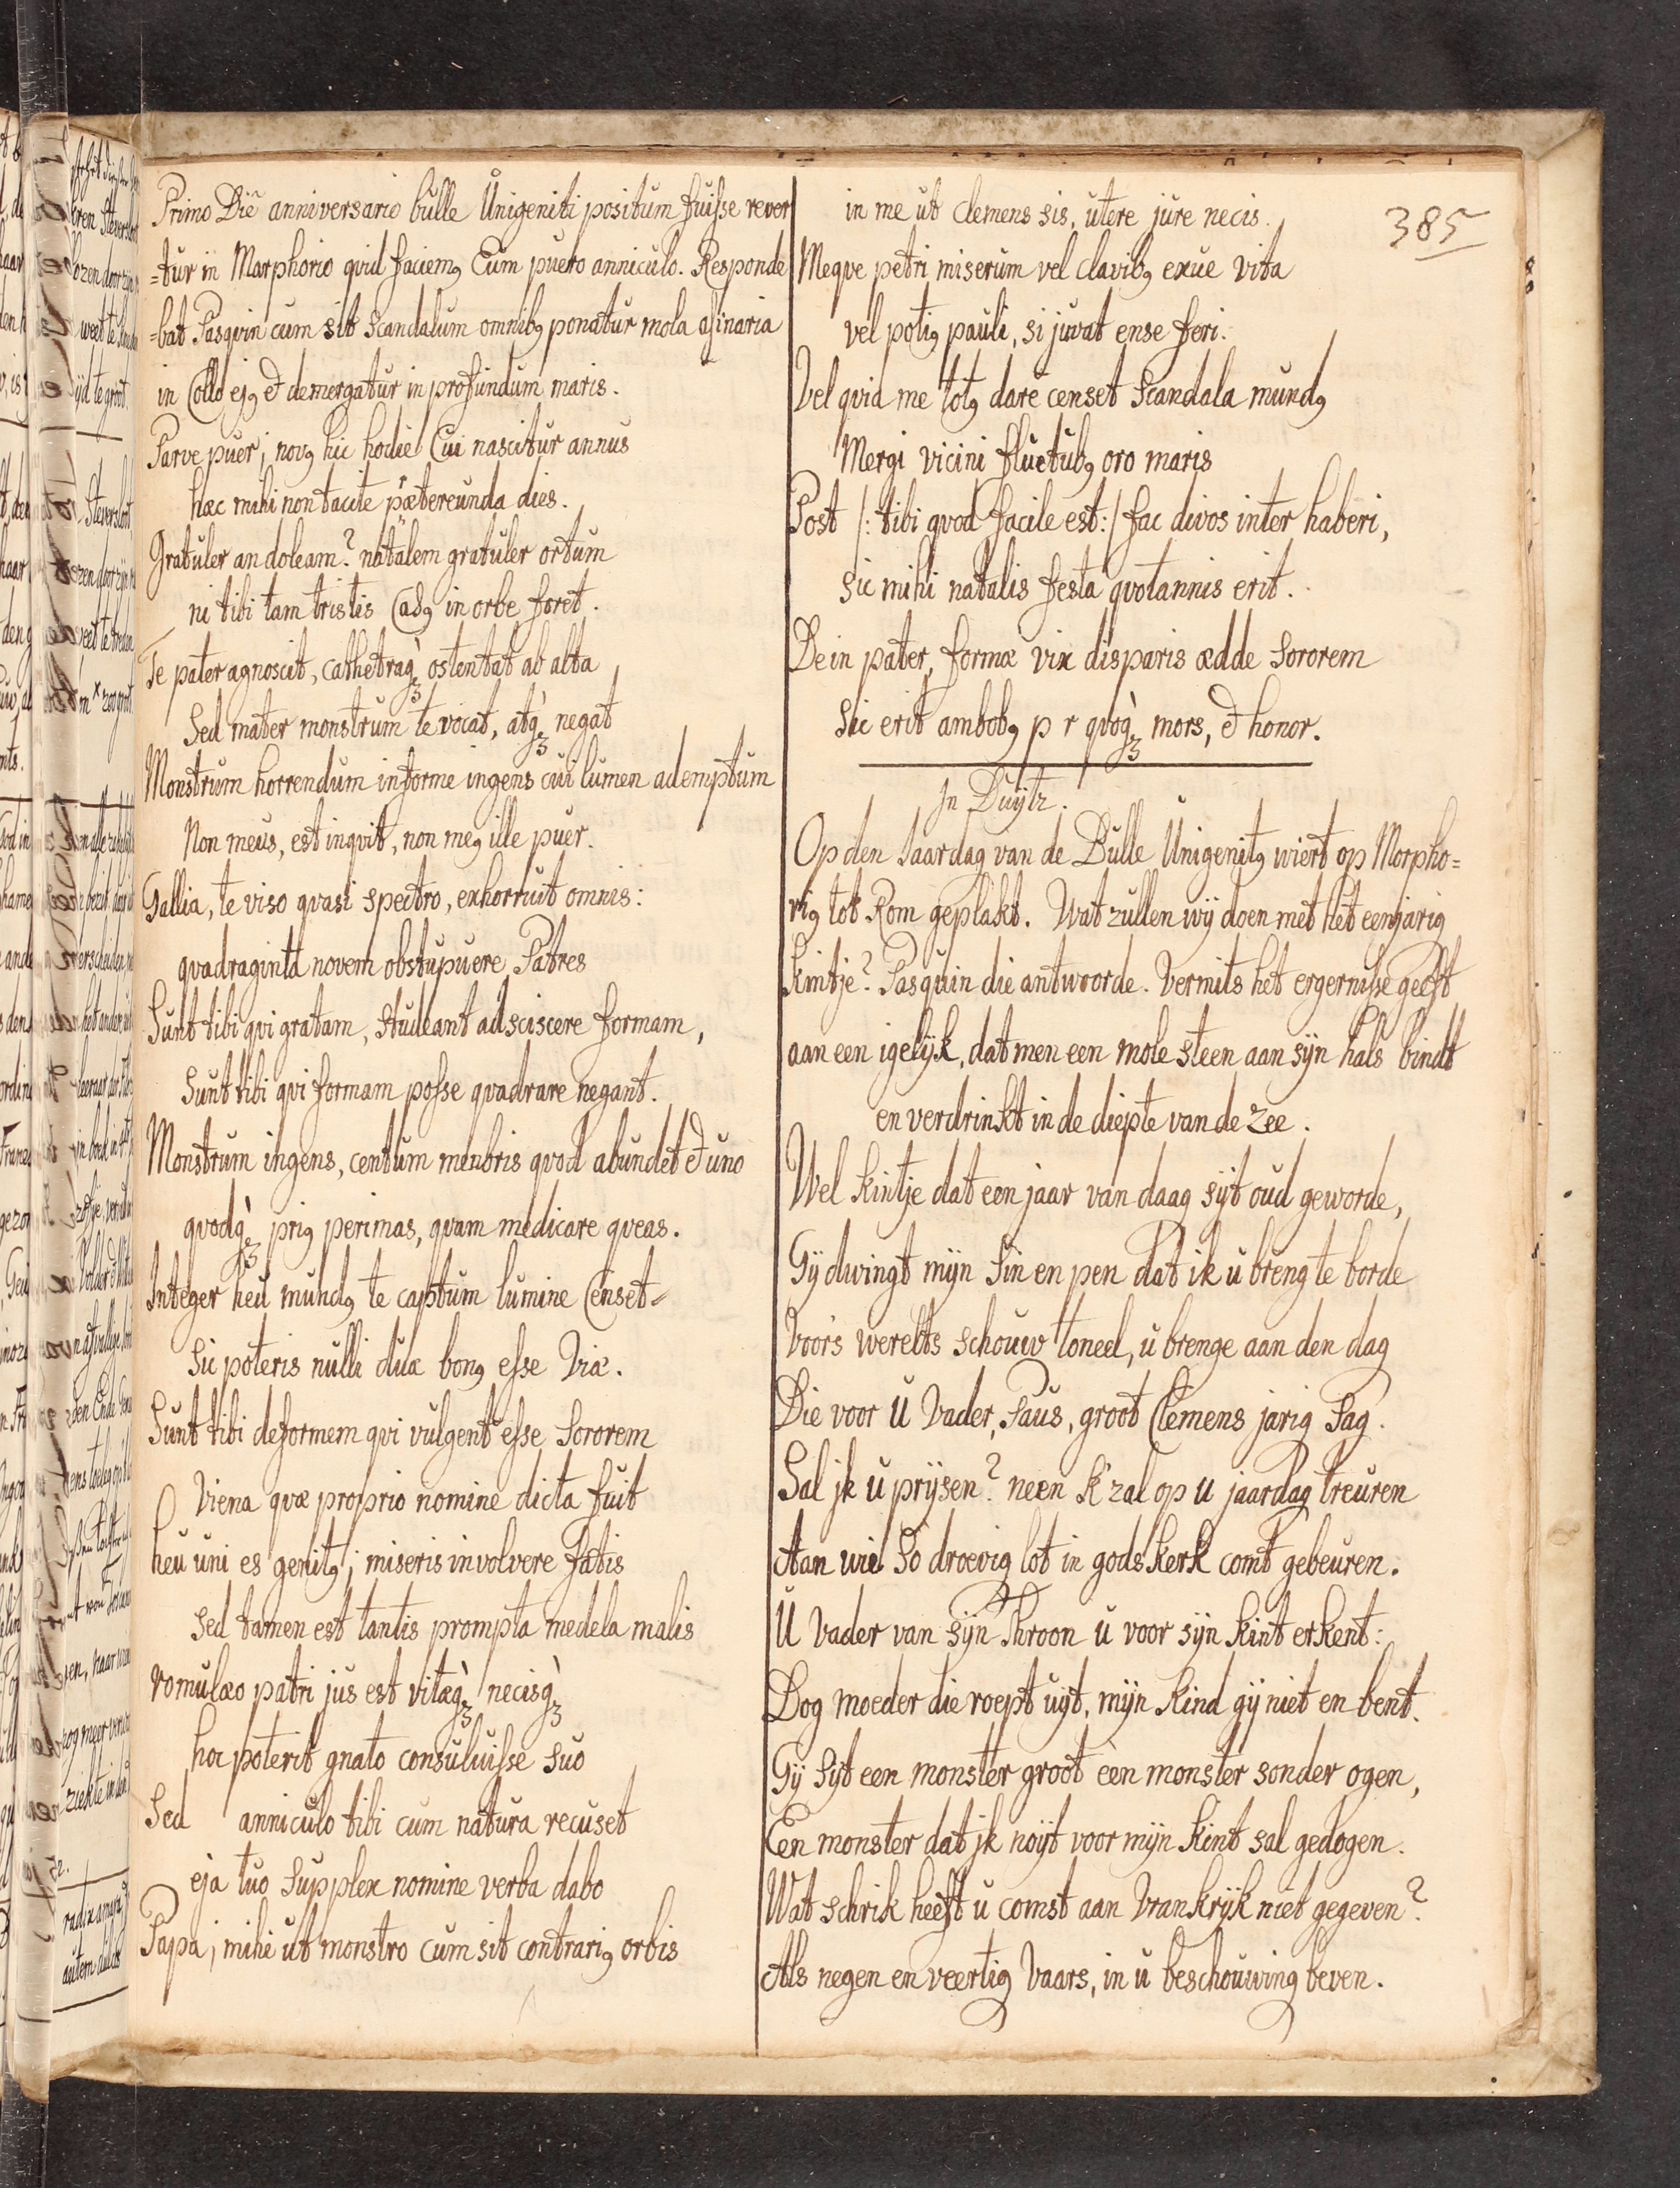 Primo Die anniversario bulle Unigeniti positum fuisse rever
=tur in Marphorio quid faciemꝰ Cum puero anniculo. Responde
=bat Pasquin cum sit scandalum omnibꝰ ponatur mola asinaria
in Collo ejꝰ & demergatur in profundum maris.
Parve puer; novꝰ hic hodie Cui nascitur annus
hæc mihi non tacite pætereunda dies.
Gratuler an doleam? natalem gratuler ortum
ni tibi tam tristis Casꝰ in orbe foret.
Te pater agnoscit, cathetraqꝫ ostentat ab alta
Sed mater monstrum te vocat, atqꝫ negat
Monstrum horrendum informe ingens cui lumen ademptum
Non meus, est inquit, non meꝰ ille puer.
Gallia, te viso quasi spectro, exhorruit omnis:
quadraginta novem obstupuere Patres
Sunt tibi qui gratam, studeant adsciscere formam,
Sunt tibi qui formam posse quadrare negant.
Monstrum ingens, centum menbris quod abundet & uno
quodqꝫ priꝰ perimas, quam medicare queas.
Integer heu mundꝰ te captum lumine Censet
Sic poteris nulli dux bonꝰ esse Viæ.
Sunt tibi deformem qui vulgent esse Sororem
Viena quæ proprio nomine dicta fuit
heu uni es genitꝰ; miseris involvere fatis
Sed tamen est tantis prompta medela malis
romulæo patri jus est vitæqꝫ necisqꝫ
hoc poterit gnato consuluisse suo
Sed anniculo tibi cum natura recuset
eja tuo supplex nomine verba dabo
Papa; mihi ut monstro cum sit contrariꝰ orbis
385
in me ut Clemens sis, utere jure necis.
Meque petri miserum vel clavibꝰ exue vita
vel potiꝰ pauli, si juvat ense feri.
Vel quia me totꝰ dare censet Scandala mundꝰ
Mergi vicini fluctubꝰ oro maris
Post /: tibi quod facile est:/ fac divos inter haberi,
Sic mihi natalis festa quotannis erit.
Dein pater, formæ vix disparis ædde Sororem
Sic erit ambobꝰ p r quoqꝫ mors, & honor.
In Duytz.
Op den Jaardag van de Bulle Unigenitꝰ wiert op Morpho=
riꝰ tot Rom geplakt. Wat zullen wij doen met het eenjarig
kintje? Pasquin die antwoorde. Vermits het ergernisse geeft
aan een igelijk, dat men een mole steen aan sijn hals bindt
en verdrinkt in de diepte van de zee.
Wel kintje dat een jaar van daag sijt oud geworde,
Gij dwingt mijn Sin en pen dat ik u breng te borde
Voors werelts schouw toneel, u brenge aan den dag
Die voor u Vader, Paus, groot Clemens jarig Sag.
Sal jk u prijsen? neen k'zal op u jaardag treuren
Aan wie So droevig lot in gods kerk comt gebeuren.
U Vader van sijn Throon u voor sijn kint erkent:
Dog moeder die roept uyt, mijn Kind gij niet en bent.
Gij Sijt een monster groot een monster sonder ogen,
Een monster dat jk noijt voor mijn kint sal gedogen.
Wat schrik heeft u comst aan Vrankrijk niet gegeven?
Als negen en veertig Vaars, in u beschouwing beven.